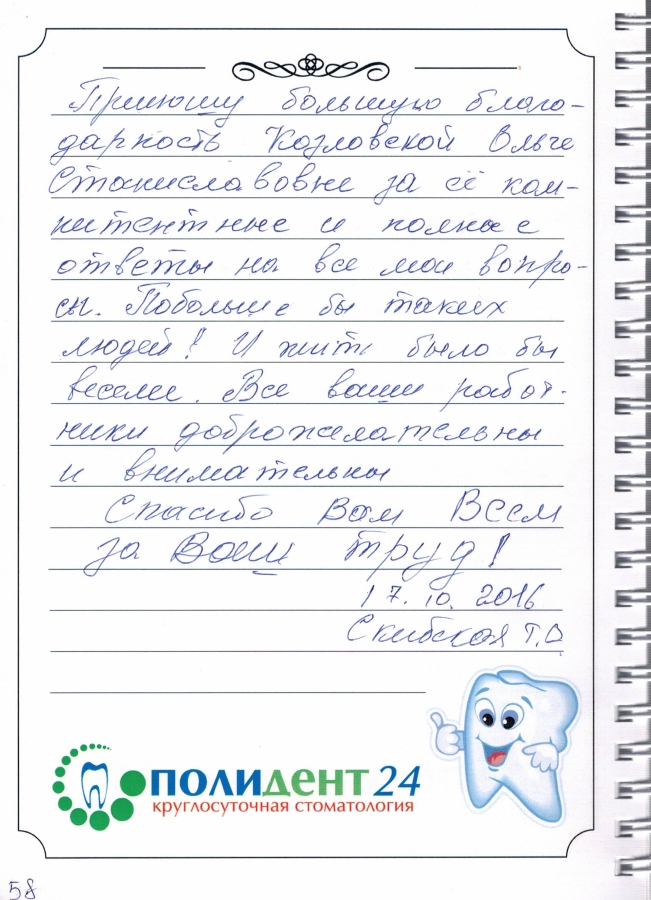 Приношу большую благо-
дарность Козловской Ольге
Станиславовне за её ком-
питентные и полные
ответы на все мои вопро-
сы. Побольше бы таких
людей! И жить было бы
веселе. Все ваши работ-
ники доброжелательны
и внимательны
Спасибо Вам Всем
за Ваш труд!
17.10.2016
Скибская Т.О
ПОЛИДЕНТ 24
КРУГЛОСУТОЧНАЯ СТОМАТОЛОГИЯ
58